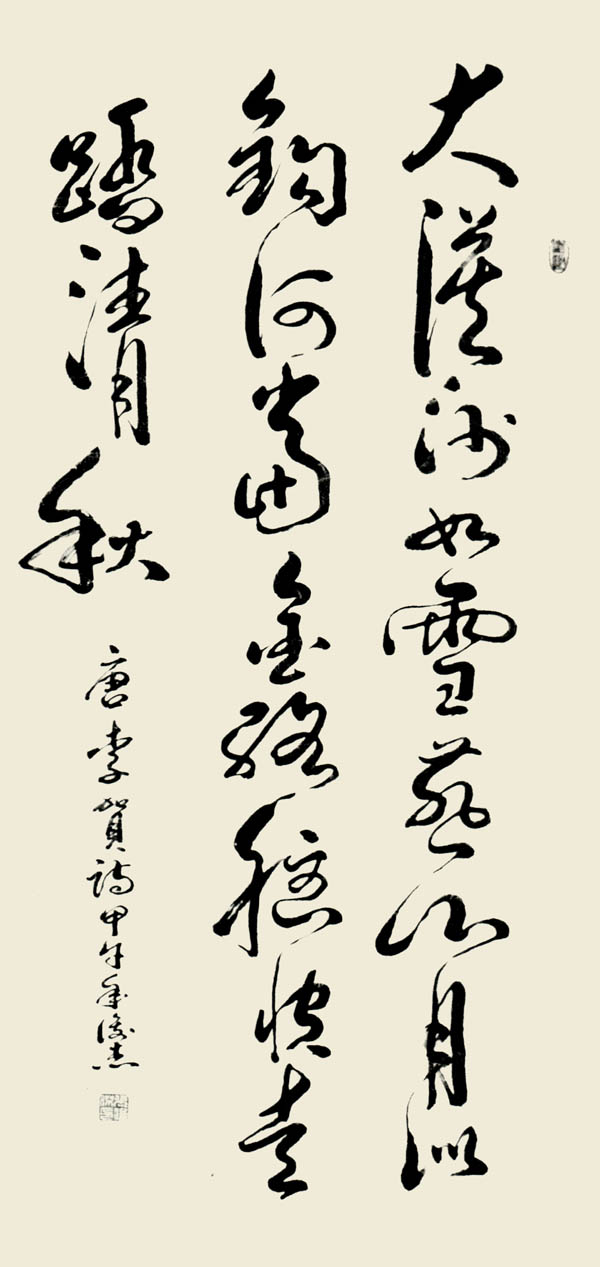 大漠沙如雪燕山月似
鈎何當金絡腦快走
踏清秋
唐李賀詩甲午年俊杰